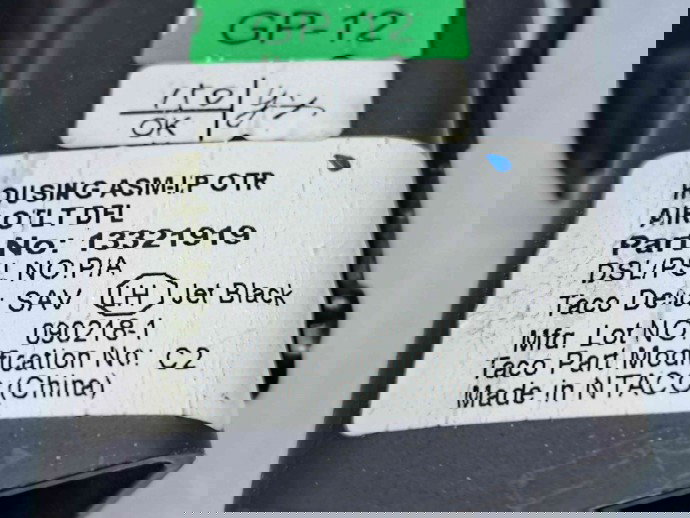 GP-12
OK
HOUSING ASM-I.P OTR
AIR O'LT DFL
Part No: 13321919
DSL/PSL NO:P/A
Taco Delta SAV LH Jet Black
090218-1
Mfg Lot NO:
Taco Part Modification No: C2
Made in NTACO (China)